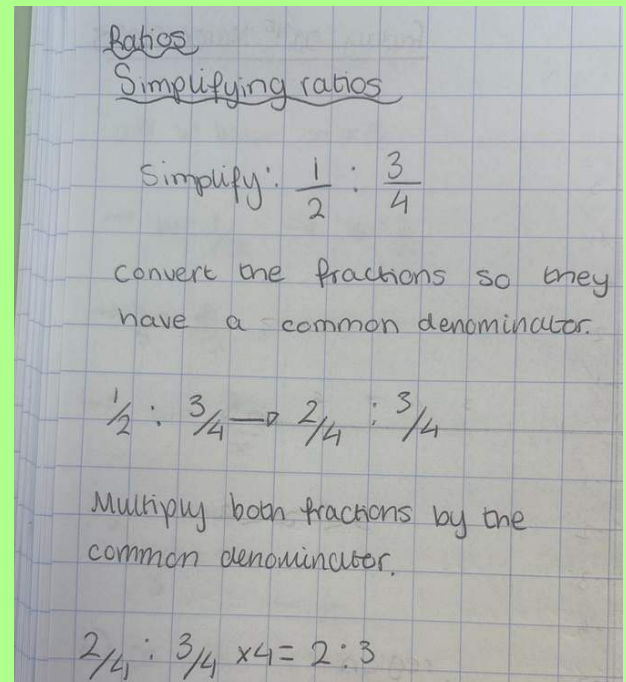 Ratios
Simplifying ratios
Simplify: 1/2 : 3/4
convert the fractions so they
have a common denominator.
1/2 : 3/4 → 2/4 : 3/4
Multiply both fractions by the
common denominator.
2/4 : 3/4 ×4 = 2:3